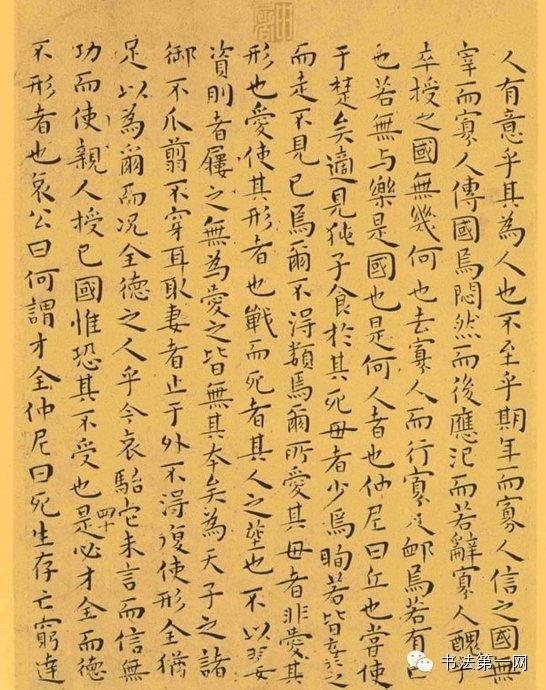 人有意乎其為人也不至乎期年而寡人信之國無
宰而寡人傳國焉悶然而後應氾而若辭寡人醜乎
卒授之國無幾何也去寡人而行寡人卹焉若有亡
也若無与樂是國也是何人者也仲尼曰丘也嘗使
于楚矣適見㹠子食於其死母者少焉眴若皆棄之
而走不見已焉爾不得類焉爾所愛其母者非愛其
形也愛使其形者也戰而死者其人之塟也不以翣
資刖者屨之無為愛之皆無其本矣為天子之諸
御不爪翦不穿耳取妻者止于外不得復使形全猶
足以為爾而況全德之人乎今哀駘它未言而信無
四十
功而使親人授己國惟恐其不受也是必才全而德
不形者也哀公曰何謂才全仲尼曰死生存亡窮達
书法第一网